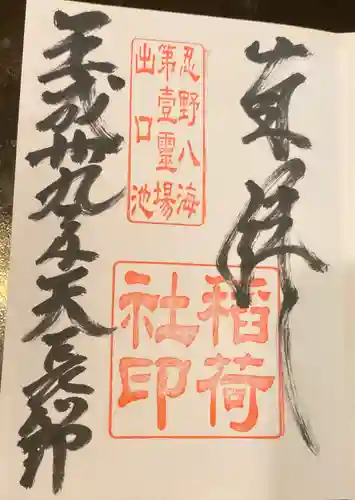 奉拝
忍野八海
第壹靈場
出口池
稲荷
社印
平成廿九年天長節